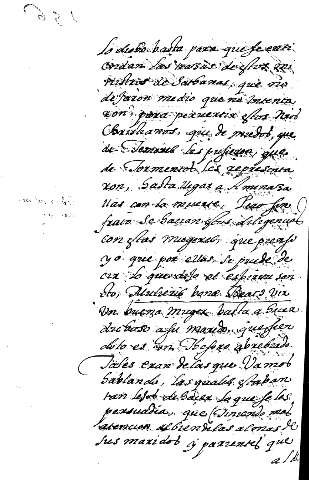 lo dicho basta para que se enti
endan las trazas de estos mi
nistros de Sathanas, que no
dejaron medio que no intenta
ron, para pervertir estos
Christianos, que de miedos, que
de Temores les pusieron, que
de Tormentos les representa
ron, hasta llegar a Amenaza
llas con la muerte,
se hacian estas diligencias
con estas mugeres, que pienso
yo que por ellas se puede de
cir lo que dixo el espiritu san
to, Mulieris bonæ Beatus vir
la buena Muger basta a hacer
dichoso a su marido, que sien
do lo es un Tesoro
Tales eran de las que Vamos
hablando, las quales estaban
tan lejos de hacer lo que se les
persuadia, que Teniendo mas
atencion al bien de las almas de
sus maridos y parientes que
a la